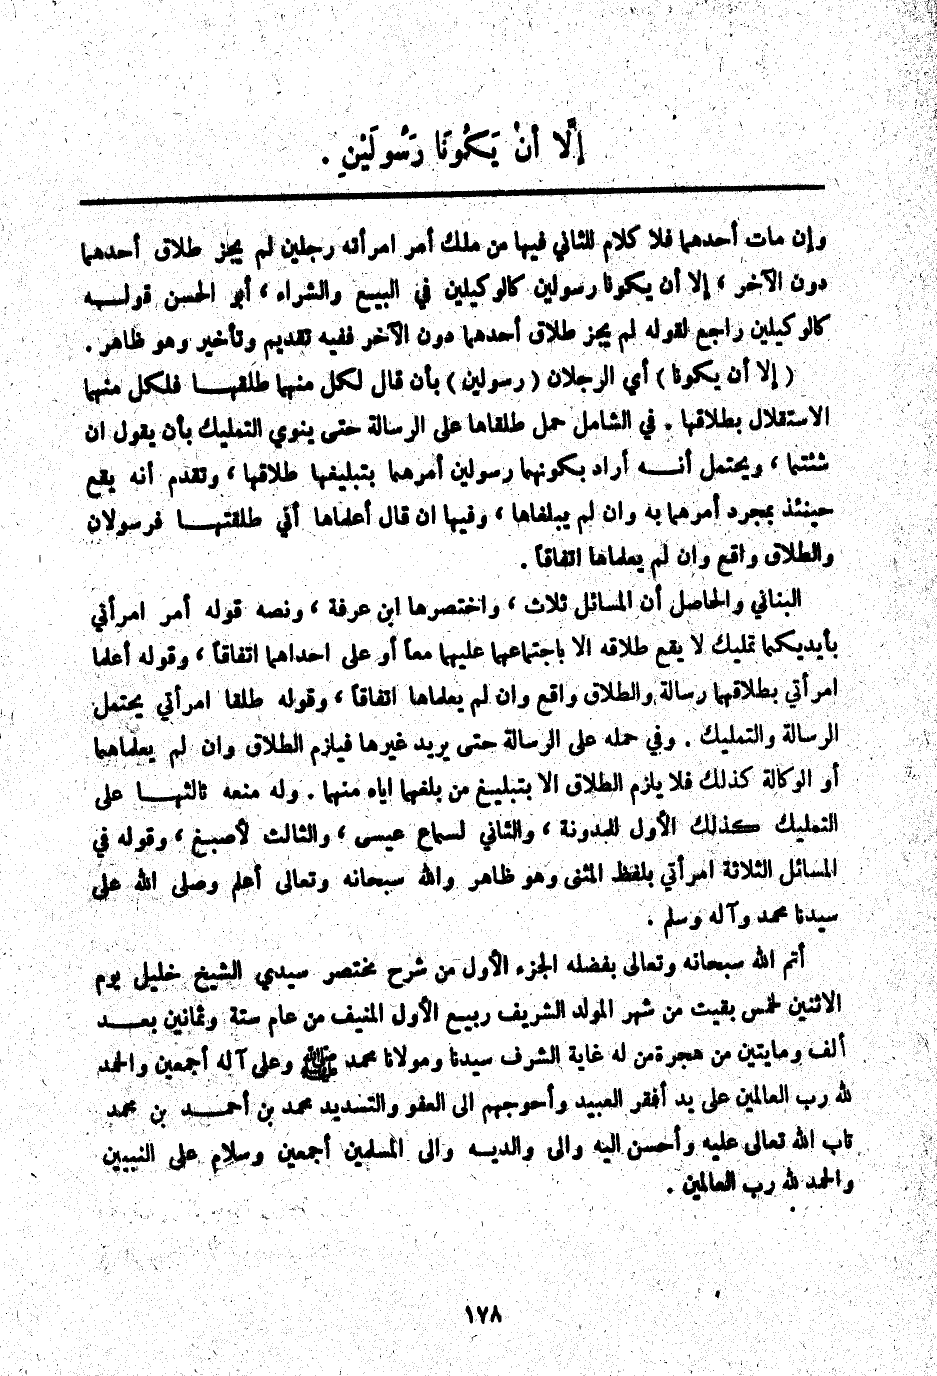 إِلَّا أَنْ يَكُونَا رَسُولَيْنِ .
وإن مات أحدهما فلا كلام للثاني فيها من ملك أمر امرأته رجلين لم يجز طلاق أحدهما
دون الآخر ، إلا أن يكونا رسولين كالوكيلين في البيع والشراء ، أبو الحسن قولـــه
كالوكيلين راجع لقوله لم يجز طلاق أحدهما دون الآخر ففيه تقديم وتأخير وهو ظاهر .
( إلا أن يكونا ) أي الرجلان ( رسولين ) بأن قال لكل منهما طلقهـــا فلكل منهما
الاستقلال بطلاقها . في الشامل حمل طلقاها على الرسالة حتى ينوي التمليك بأن يقول ان
شئتما ، ويحتمل أنـــه أراد بكونهما رسولين أمرهما بتبليغها طلاقها ، وتقدم أنه يقع
حينئذ بمجرد أمرهما به وان لم يبلغاها ، وفيها ان قال أعلماها أني طلقتهـــا فرسولان
والطلاق واقع وان لم يعلماها اتفاقاً .
البناني والحاصل أن المسائل ثلاث ، واختصرها ابن عرفة ، ونصه قوله أمر امرأتي
بأيديكما تمليك لا يقع طلاقه الا باجتماعهما عليهما معاً أو على احداهما اتفاقاً ، وقوله أعلما
امرأتي بطلاقهما رسالة والطلاق واقع وان لم يعلماها اتفاقاً ، وقوله طلقا امرأتي يحتمل
الرسالة والتمليك . وفي حمله على الرسالة حتى يريد غيرها فيلزم الطلاق وان لم يعلماهما
أو الوكالة كذلك فلا يلزم الطلاق الا بتبليغ من بلغهما اياه منهما . وله منعه ثالثهـــا على
التمليك كذلك الأول للمدونة ، والثاني لسماع عيسى ، والثالث لأصبغ ، وقوله في
المسائل الثلاثة امرأتي بلفظ المثنى وهو ظاهر والله سبحانه وتعالى أعلم وصلى الله على
سيدنا محمد وآله وسلم .
أتم الله سبحانه وتعالى بفضله الجزء الأول من شرح مختصر سيدي الشيخ خليل يوم
الاثنين لخمس بقيت من شهر المولد الشريف ربيع الأول المنيف من عام ستة وثمانين بعـــد
ألف ومايتين من هجرة من له غاية الشرف سيدنا ومولانا محمد ﷺ وعلى آله أجمعين والحمد
لله رب العالمين على يد أفقر العبيد وأحوجهم الى العفو والتسديد محمد بن أحمـــد بن محمد
تاب الله تعالى عليه وأحسن اليه والى والديـــه والى المسلمين أجمعين وسلام على النبيين
والحمد لله رب العالمين .
١٧٨